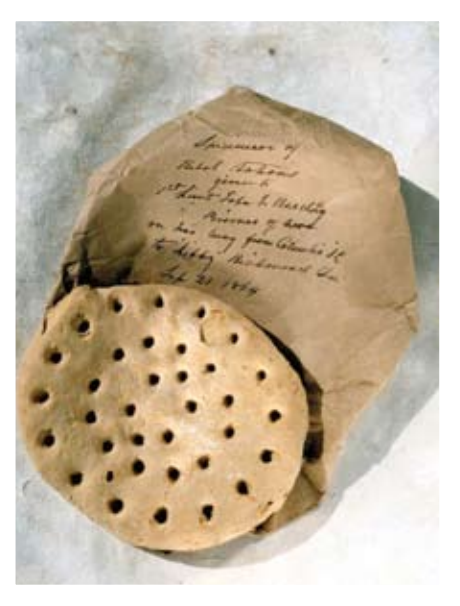 Specimen of
Rebel rations
given to
1st Lieut John L.
Prisoner of war
on his way from Columbia SC
to Libby Richmond Va
1864